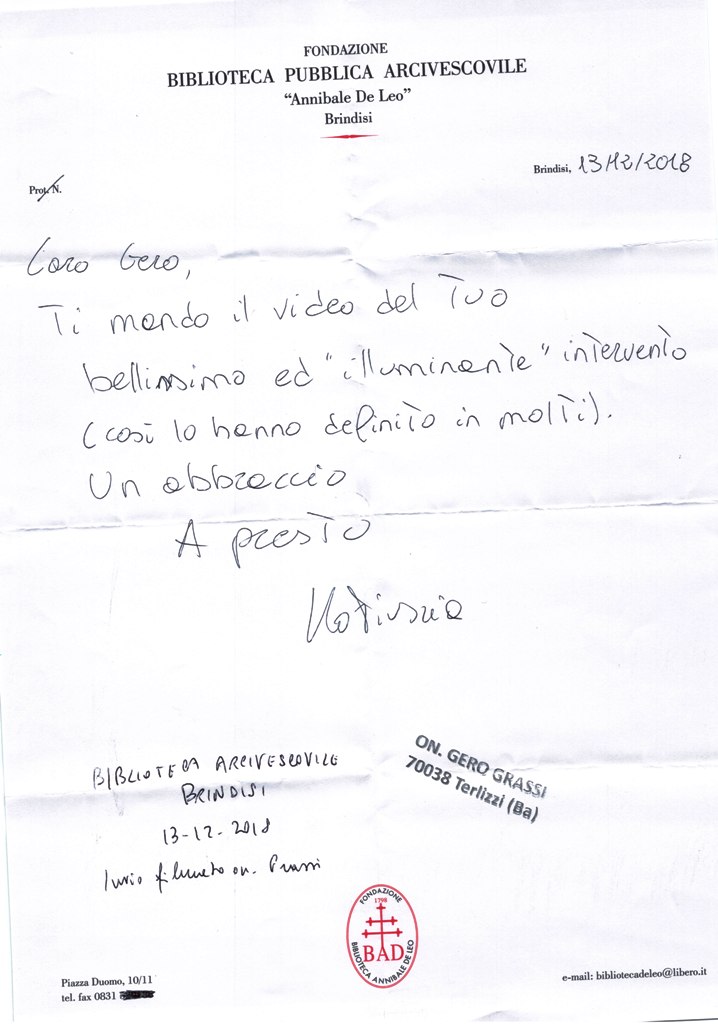 FONDAZIONE
BIBLIOTECA PUBBLICA ARCIVESCOVILE
“Annibale De Leo”
Brindisi
Brindisi, 13/12/2018
Prot. N.
Caro Gero,
Ti mando il video del Tuo
bellissimo ed "illuminante" intervento
(così lo hanno definito in molti).
Un abbraccio
A presto
Katiuscia
BIBLIOTECA ARCIVESCOVILE
BRINDISI
13-12-2018
Invio filmato on. Grassi
ON. GERO GRASSI
70038 Terlizzi (Ba)
FONDAZIONE
1798
BAD
BIBLIOTECA ANNIBALE DE LEO
Piazza Duomo, 10/11
tel. fax 0831
e-mail: bibliotecadeleo@libero.it